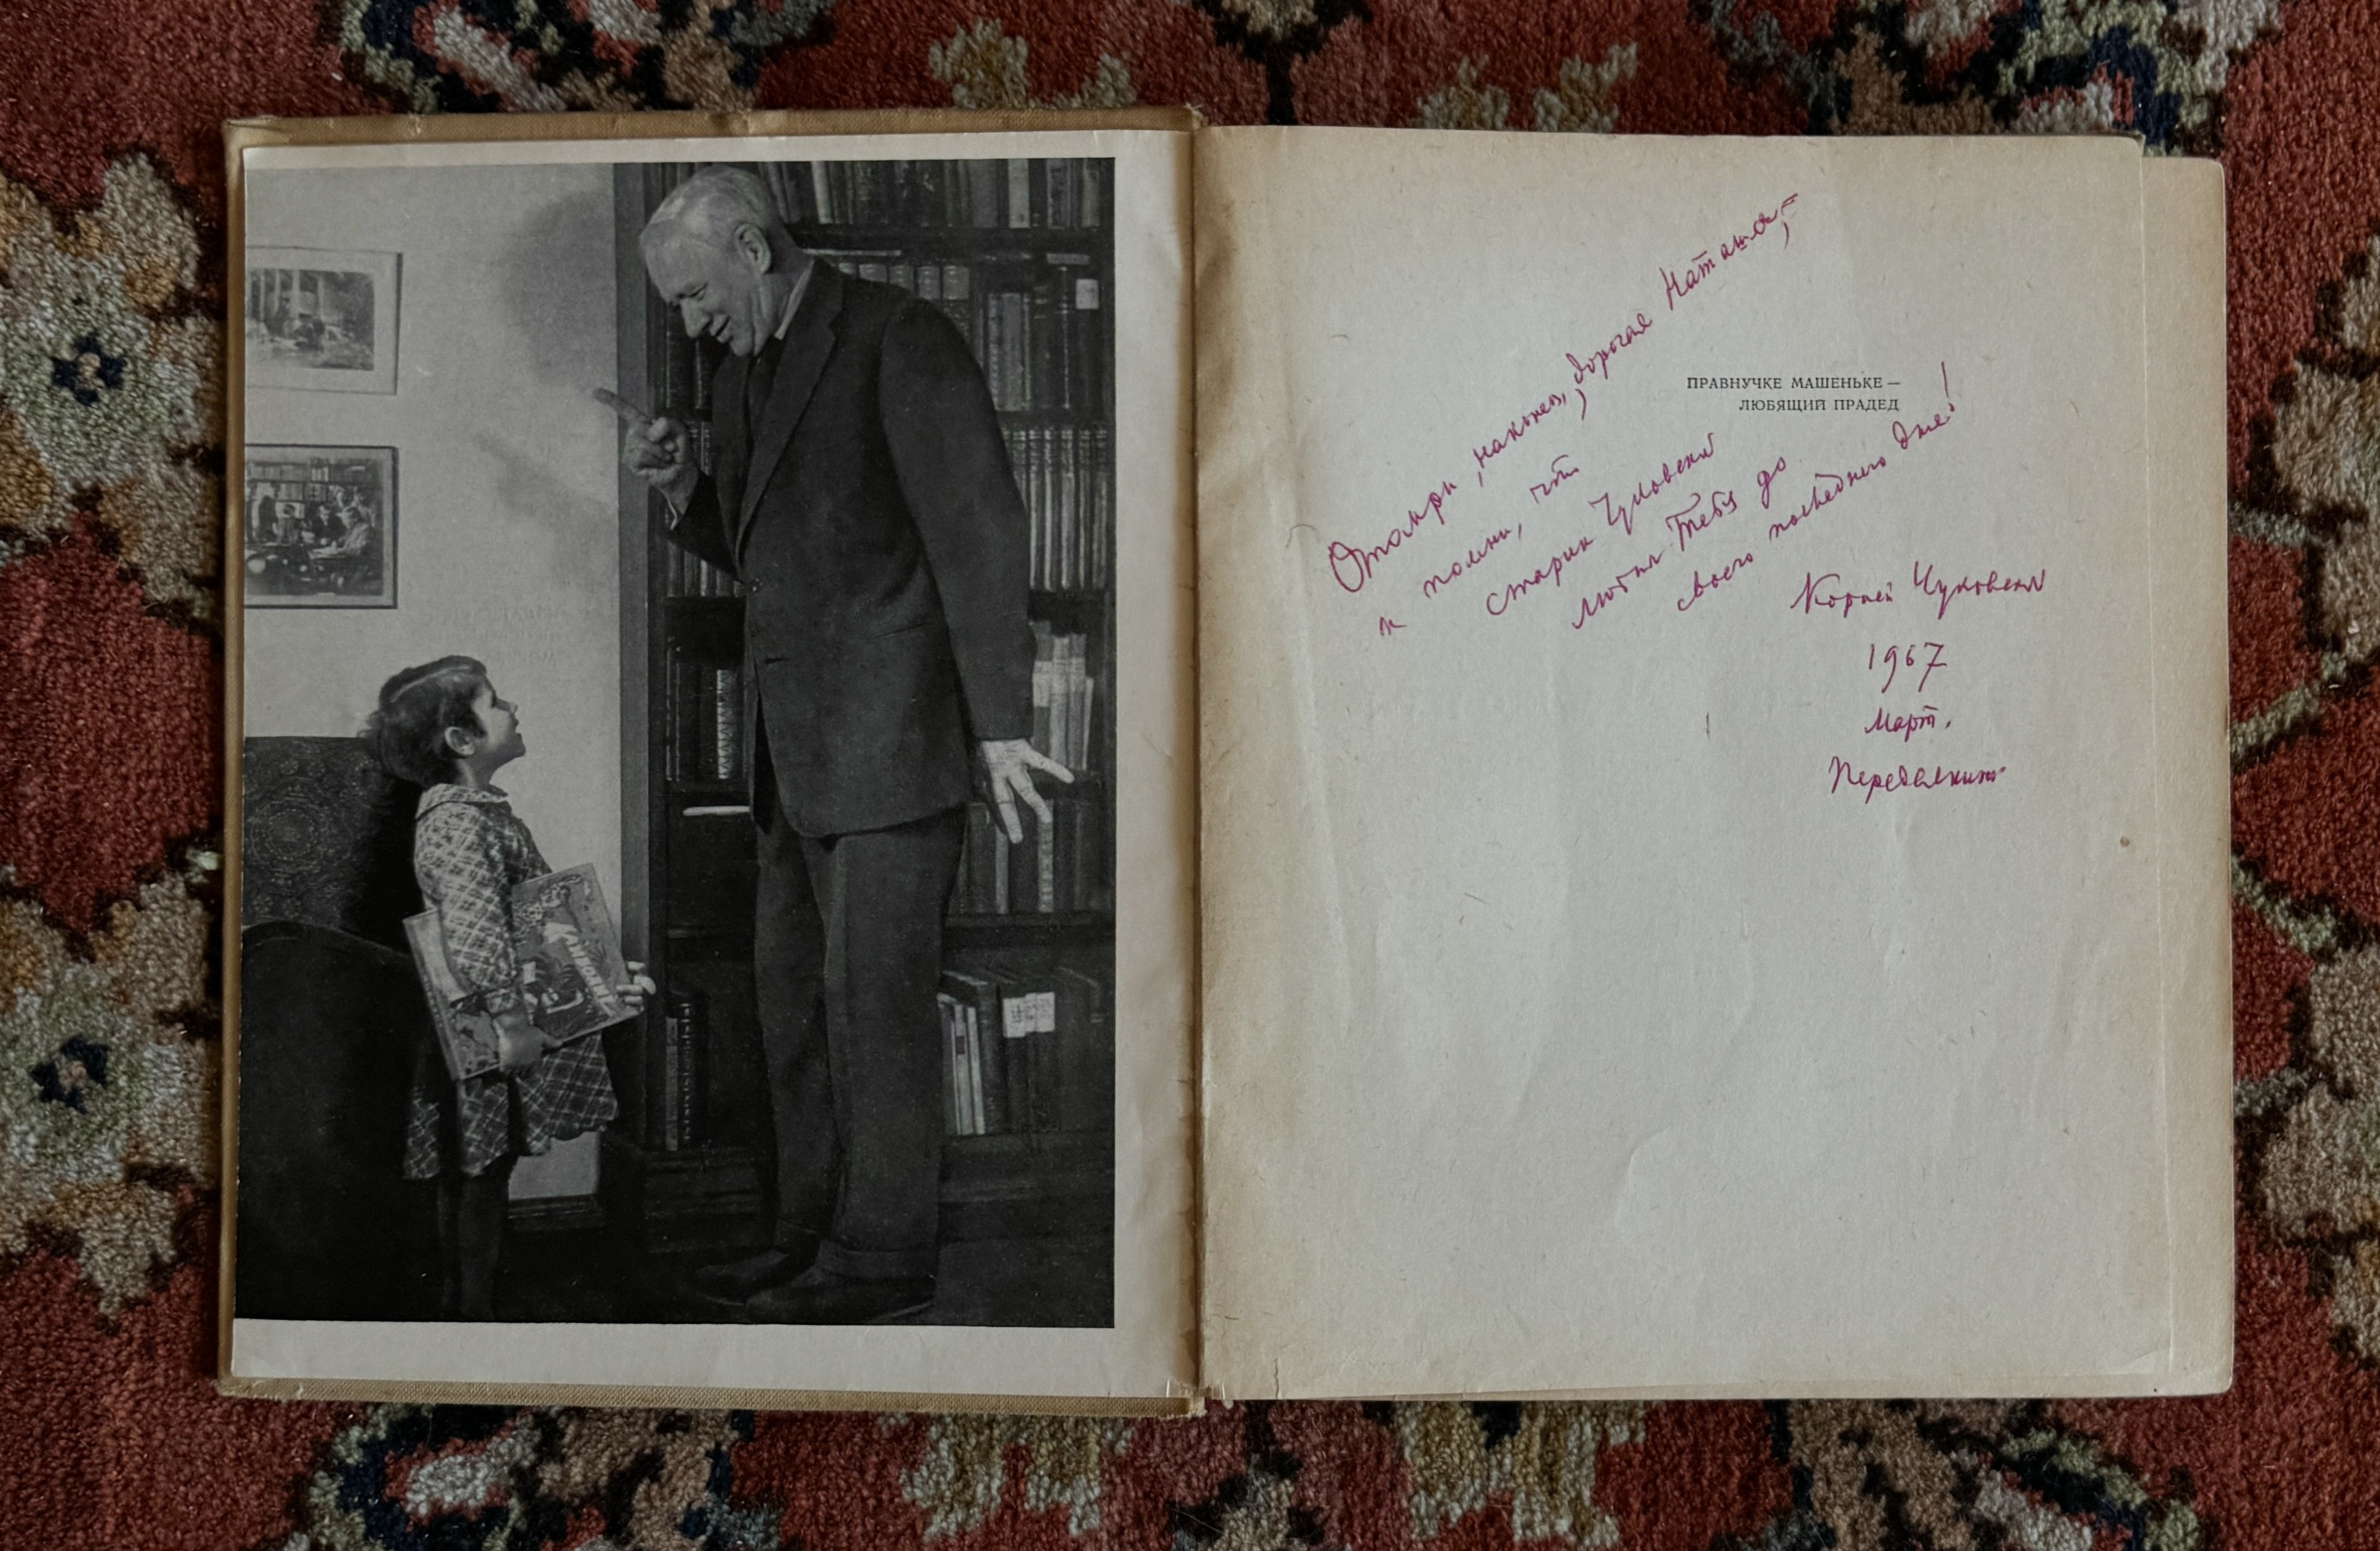 ПРАВНУЧКЕ МАШЕНЬКЕ —
ЛЮБЯЩИЙ ПРАДЕД
Отомри, наконец, дорогая Наташа, –
и помни, что
старик Чуковский
любил Тебя до
своего последнего дня!
Корней Чуковский
1967
Март.
Переделкино